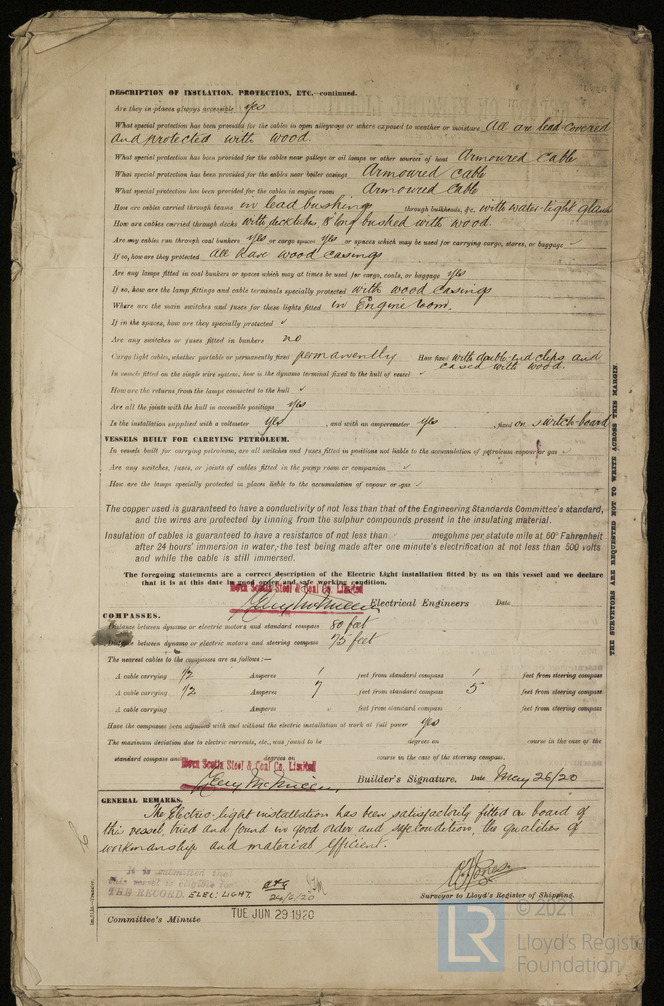 DESCRIPTION OF INSULATION, PROTECTION, ETC.—continued.
Are they in places always accessible yes
What special protection has been provided for the cables in open alleyways or where exposed to weather or moisture All are lead-covered
and protected with wood.
What special protection has been provided for the cables near galleys or oil lamps or other sources of heat Armoured cable
What special protection has been provided for the cables near boiler casings Armoured cable
What special protection has been provided for the cables in engine room Armoured cable
How are cables carried through beams in lead bushing through bulkheads, &c. with water-tight glands
How are cables carried through decks with deck tubes, 18" long bushed with wood.
Are any cables run through coal bunkers yes or cargo spaces yes or spaces which may be used for carrying cargo, stores, or baggage ✓
If so, how are they protected all have wood casings
Are any lamps fitted in coal bunkers or spaces which may at times be used for cargo, coals, or baggage yes
If so, how are the lamp fittings and cable terminals specially protected with wood casings
Where are the main switches and fuses for these lights fitted in Engine room.
If in the spaces, how are they specially protected ✓
Are any switches or fuses fitted in bunkers no
Cargo light cables, whether portable or permanently fixed permanently How fixed with double-end clips and
cased with wood.
In vessels fitted on the single wire system, how is the dynamo terminal fixed to the hull of vessel ✓
How are the returns from the lamps connected to the hull ✓
Are all the joints with the hull in accessible positions yes
Is the installation supplied with a voltmeter yes , and with an amperemeter yes , fixed on switch-board
VESSELS BUILT FOR CARRYING PETROLEUM.
In vessels built for carrying petroleum, are all switches and fuses fitted in positions not liable to the accumulation of petroleum vapour or gas ✓
Are any switches, fuses, or joints of cables fitted in the pump room or companion ✓
How are the lamps specially protected in places liable to the accumulation of vapour or gas ✓
The copper used is guaranteed to have a conductivity of not less than that of the Engineering Standards Committee's standard,
and the wires are protected by tinning from the sulphur compounds present in the insulating material.
Insulation of cables is guaranteed to have a resistance of not less than megohms per statute mile at 60° Fahrenheit
after 24 hours' immersion in water, the test being made after one minute's electrification at not less than 500 volts
and while the cable is still immersed.
The foregoing statements are a correct description of the Electric Light installation fitted by us on this vessel and we declare
that it is at this date in good order and safe working condition.
Nova Scotia Steel & Coal Co. Limited
Electrical Engineers Date
COMPASSES.
Distance between dynamo or electric motors and standard compass 80 feet
Distance between dynamo or electric motors and steering compass 75 feet
The nearest cables to the compasses are as follows:—
A cable carrying 1/2 Amperes 1 feet from standard compass 1 feet from steering compass
A cable carrying 1/2 Amperes 7 feet from standard compass 5 feet from steering compass
A cable carrying Amperes feet from standard compass feet from steering compass
Have the compasses been adjusted with and without the electric installation at work at full power yes
The maximum deviation due to electric currents, etc., was found to be degrees on course in the case of the
standard compass and degrees on course in the case of the steering compass.
Nova Scotia Steel & Coal Co., Limited
Builder's Signature. Date May 26/20
GENERAL REMARKS.
The Electric-light installation has been satisfactorily fitted on board of
this vessel, tried and found in good order and safe condition, the qualities of
workmanship and material efficient.
It is submitted that
this vessel is eligible for
THE RECORD. ELEC: LIGHT.
24/6/20
Surveyor to Lloyd's Register of Shipping.
Committee's Minute TUE JUN 29 1920
THE SURVEYORS ARE REQUESTED NOT TO WRITE ACROSS THIS MARGIN
LR
© 2021
Lloyd's Register
Foundation